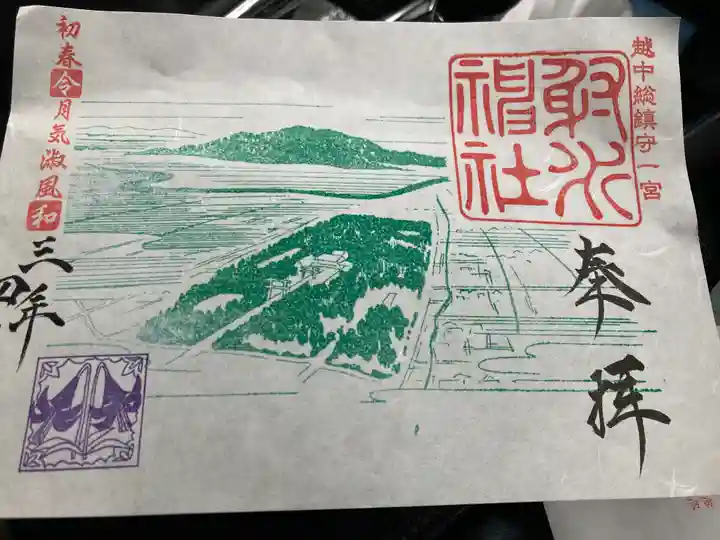 越中総鎮守一宮
射水
神社
奉拝
初春令月気淑風和
三年